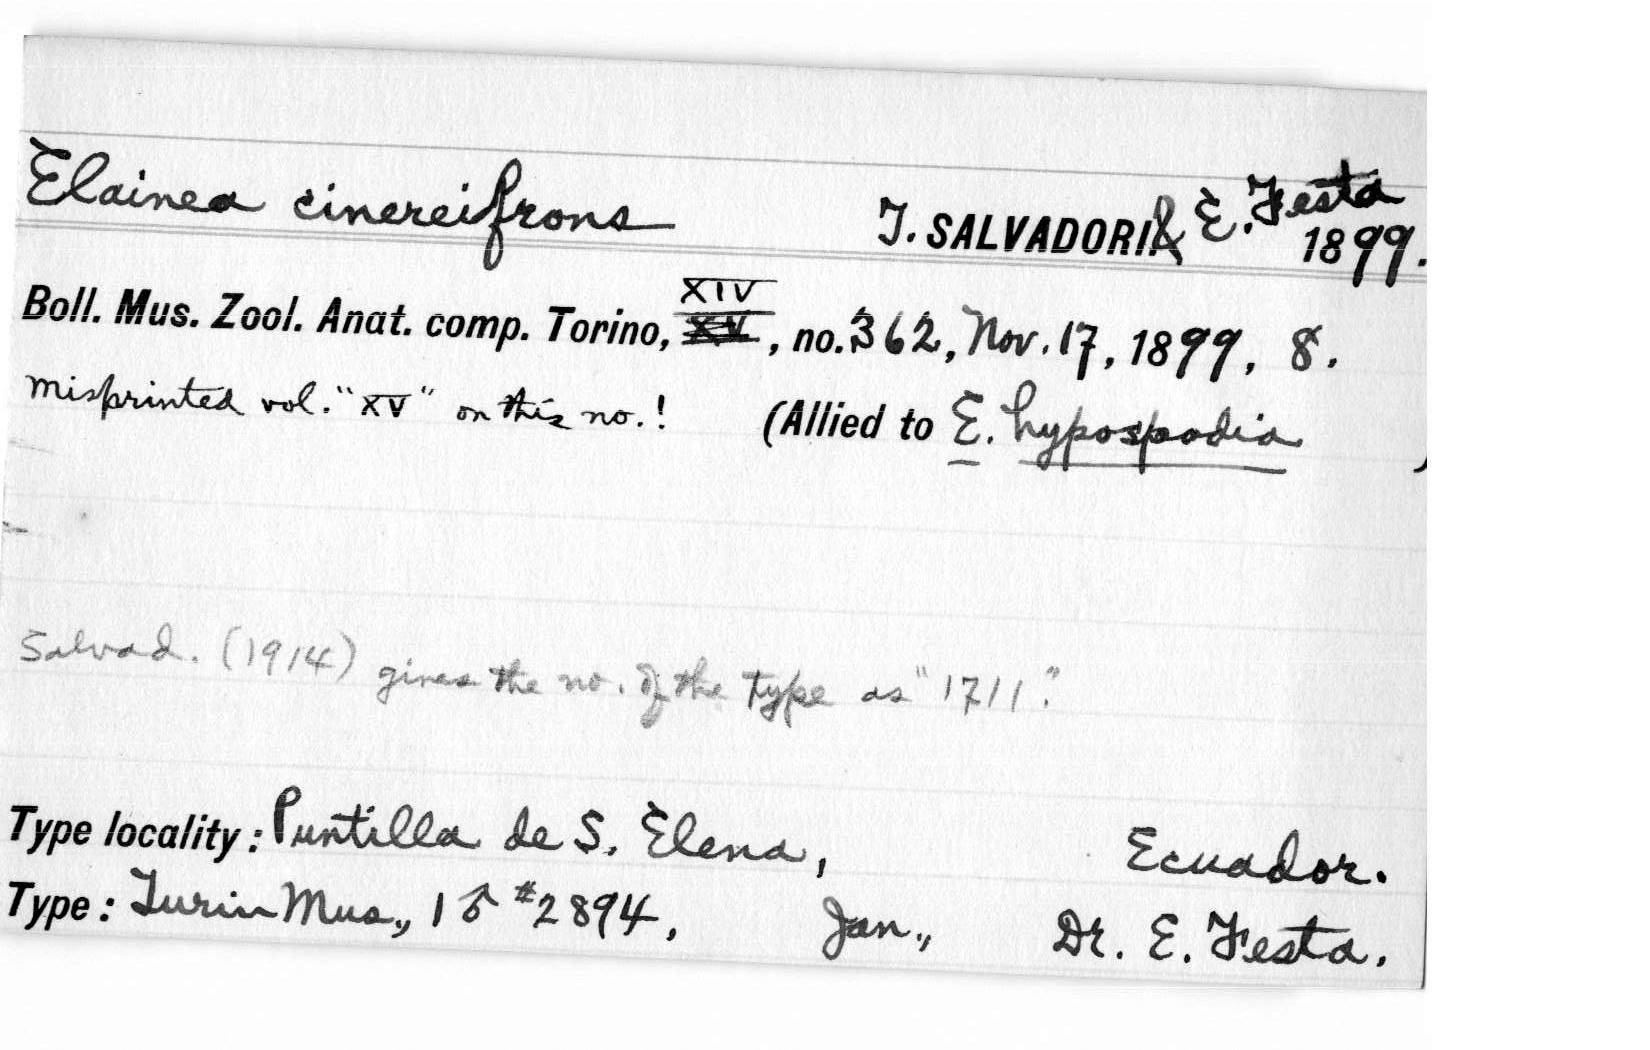 Elainea cinereifrons T. SALVADORI & E. Festa 1899.
XIV
Boll. Mus. Zool. Anat. comp. Torino, XV, no. 362, Nov. 17, 1899, 8.
Misprinted vol. "XV" on this no.! (Allied to E. hypospodia )
Salvad. (1914) gives the no. of the type as "1711."
Type locality: Puntilla de S. Elena, Ecuador.
Type: Turin Mus., 1 ♂ #2894, Jan., Dr. E. Festa.